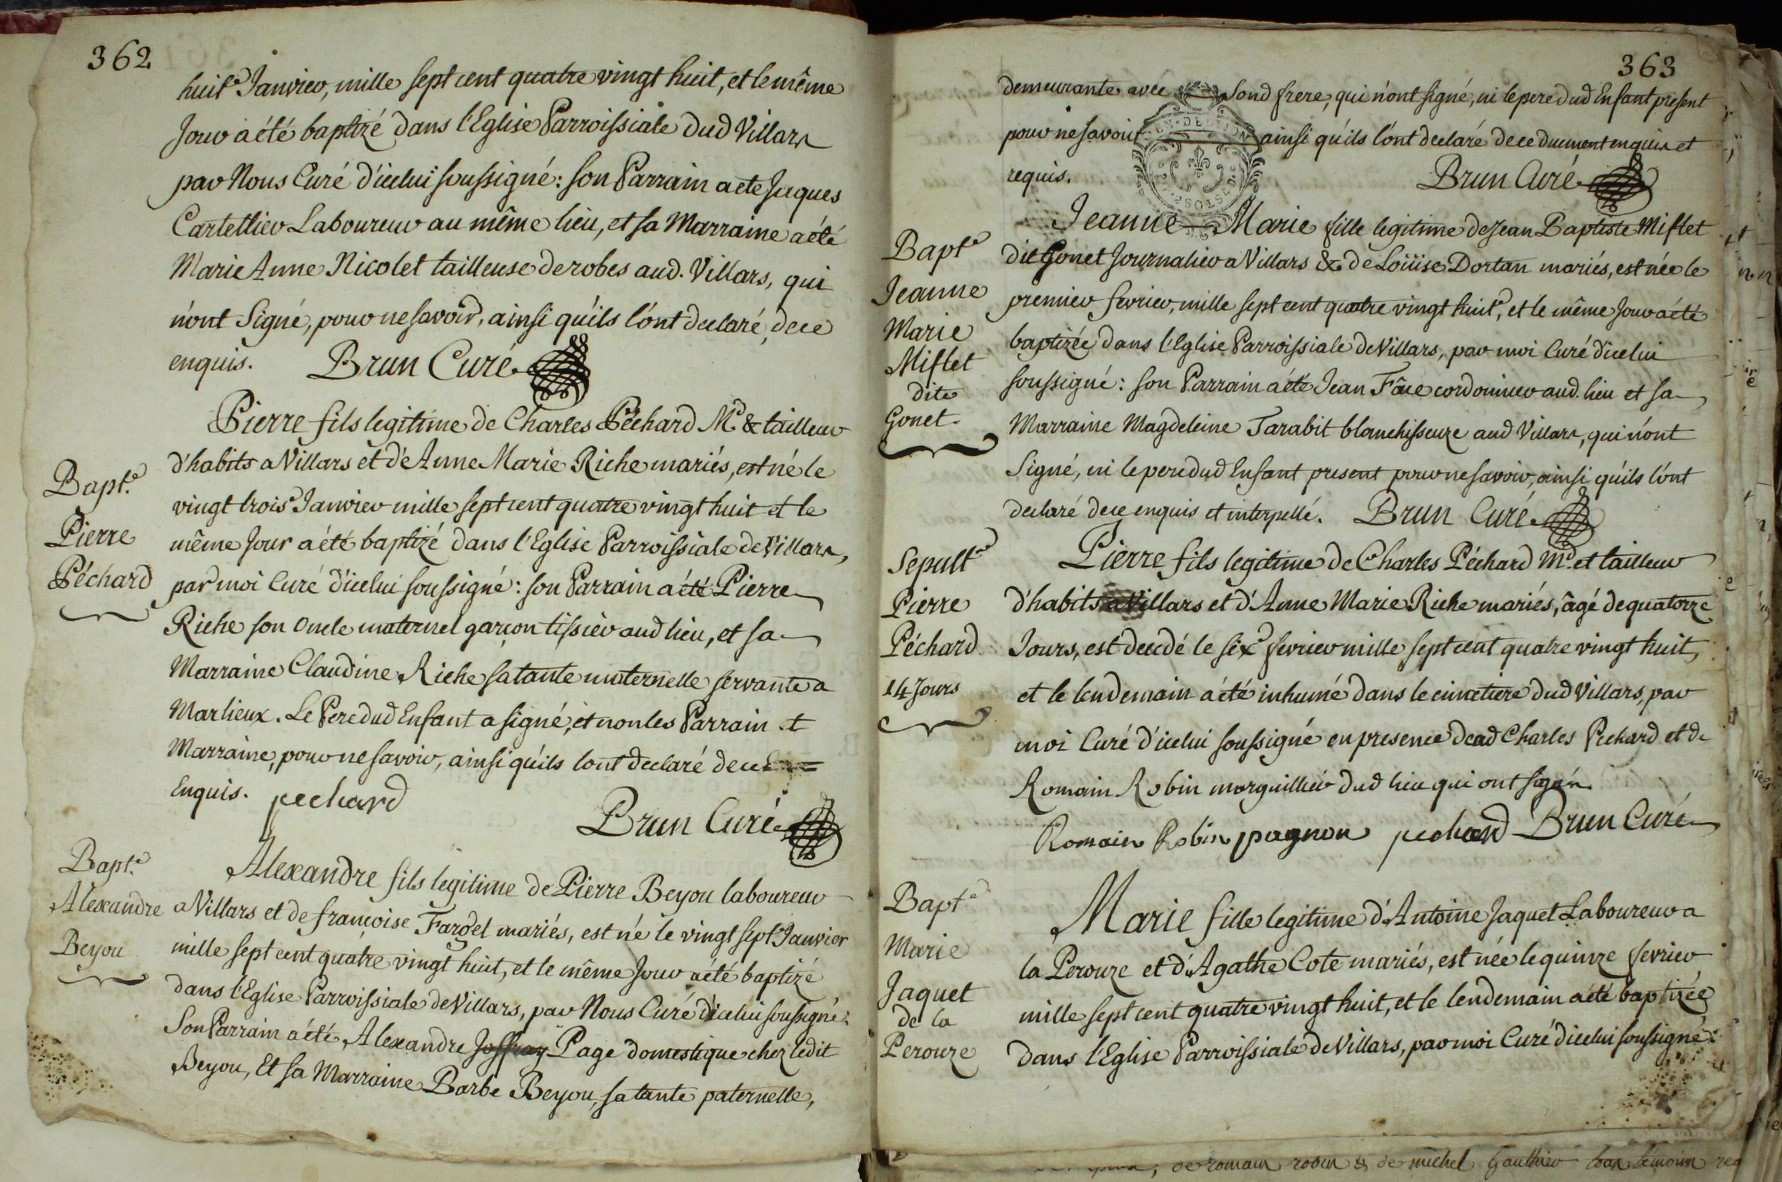 362
huit Janvier, mille sept cent quatre vingt huit, et le même
Jour a été baptizé dans l'Eglise Parroissiale dud Villars
par Nous Curé d'icelui soussigné : son Parrain a été Jaques
Cartellier Laboureur au même lieu, et sa Marraine a été
Marie Anne Nicolet tailleuse de robes aud. Villars, qui
n'ont Signé, pour ne savoir, ainsi qu'ils l'ont declaré, de ce
enquis. Brun Curé
Bapt.e
Pierre
Péchard
Pierre fils legitime de Charles Péchard Md & tailleur
d'habits a Villars et d'Anne Marie Riche mariés, est né le
vingt trois Janvier mille sept cent quatre vingt huit et le
même Jour a été baptizé dans l'Eglise Parroissiale de Villars,
par moi Curé d'icelui soussigné : son Parrain a été Pierre
Riche son Oncle maternel garçon tissier aud lieu, et sa
Marraine Claudine Riche sa tante maternelle servante a
Marlieux. Le Pere dud Enfant a signé, et non les Parrain et
Marraine, pour ne savoir, ainsi qu'ils l'ont declaré de ce
Enquis. pechard
Brun Curé
Bapt.e
Alexandre
Beyou
Alexandre fils legitime de Pierre Beyou laboureur
a Villars et de françoise Fardel mariés, est né le vingt sept Janvier
mille sept cent quatre vingt huit, et le même Jour a été baptizé
dans l'Eglise Parroissiale de Villars, par Nous Curé d'icelui soussigné :
Son Parrain a été Alexandre Joffray Page domestique chez ledit
Beyou, Et sa Marraine Barbe Beyou, sa tante paternelle,
363
demeurante avec sond frere, qui n'ont signé, ni le pere dud Enfant present
pour ne savoir ainsi qu'ils l'ont declaré de ce duement enquis et
requis. Brun Curé
Bapt.e
Jeanne
Marie
Miflet
dite
Gonet
Jeanne Marie fille legitime de Jean Baptiste Miflet
dit Gonet Journalier a Villars & de Loüise Dortan mariés, est née le
premier fevrier, mille sept cent quatre vingt huit, et le même Jour a été
baptizée dans l'Eglise Parroissiale de Villars, par moi Curé d'icelui
soussigné : son Parrain a été Jean Fâue cordonnier aud. lieu et sa
Marraine Magdeleine Tarabit blanchisseuze aud Villars, qui n'ont
Signé, ni le pere dud Enfant present pour ne savoir, ainsi qu'ils l'ont
declaré de ce enquis et interpellé. Brun Curé
Sepult.e
Pierre
Péchard
14 Jours
Pierre fils legitime de Charles Péchard Md et tailleur
d'habits a Villars et d'Anne Marie Riche mariés, âgé de quatorze
Jours, est decedé le six fevrier mille sept cent quatre vingt huit,
et le lendemain a été inhumé dans le cimetiere dud Villars, par
moi Curé d'icelui soussigné en presence dud Charles Pechard et de
Romain Robin marguillier dud lieu qui ont signé
Romain Robin pagnon pechard Brun Curé
Bapt.e
Marie
Jaquet
de la
Perouze
Marie fille legitime d'Antoine Jaquet Laboureur a
la Perouze et d'Agathe Cote mariés, est née le quinze fevrier
mille sept cent quatre vingt huit, et le lendemain a été baptizée
dans l'Eglise Parroissiale de Villars, par moi Curé d'icelui soussigné :
de romain robin & de michel Gauthier